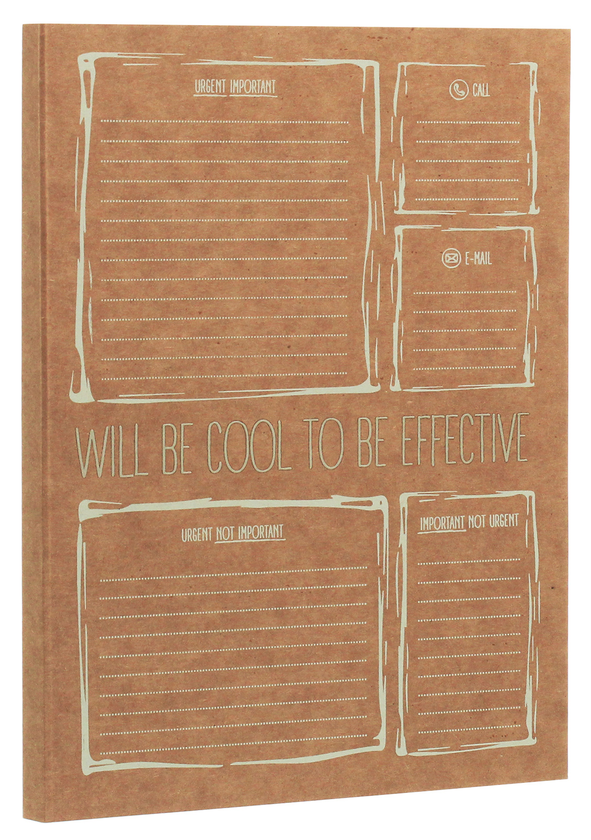 URGENT IMPORTANT
CALL
E-MAIL
WILL BE COOL TO BE EFFECTIVE
URGENT NOT IMPORTANT
IMPORTANT NOT URGENT